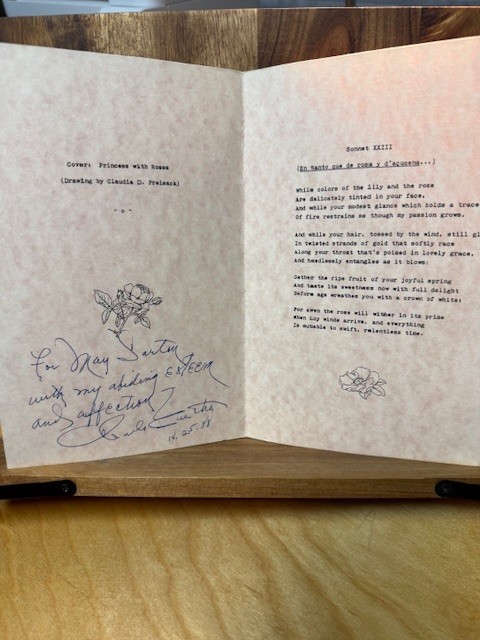 Cover: Princess with Roses
(Drawing by Claudia D.
- o -
For May Sarton
with my abiding esteem
and affection
25.88
Sonnet XXIII
(En tanto que de rosa y d'açucena...)
While colors of the lily and the rose
Are delicately tinted in your face,
And while your modest glance which holds a trace
Of fire restrains me though my passion grows.
And while your hair, tossed by the wind, still gl
In twisted strands of gold that softly race
Along your throat that's poised in lovely grace,
And heedlessly entangles as it blows:
Gather the ripe fruit of your joyful spring
And taste its sweetness now with full delight
Before age wreathes you with a crown of white;
For even the rose will wither in its prime
When icy winds arrive, and everything
Is mutable to swift, relentless time.